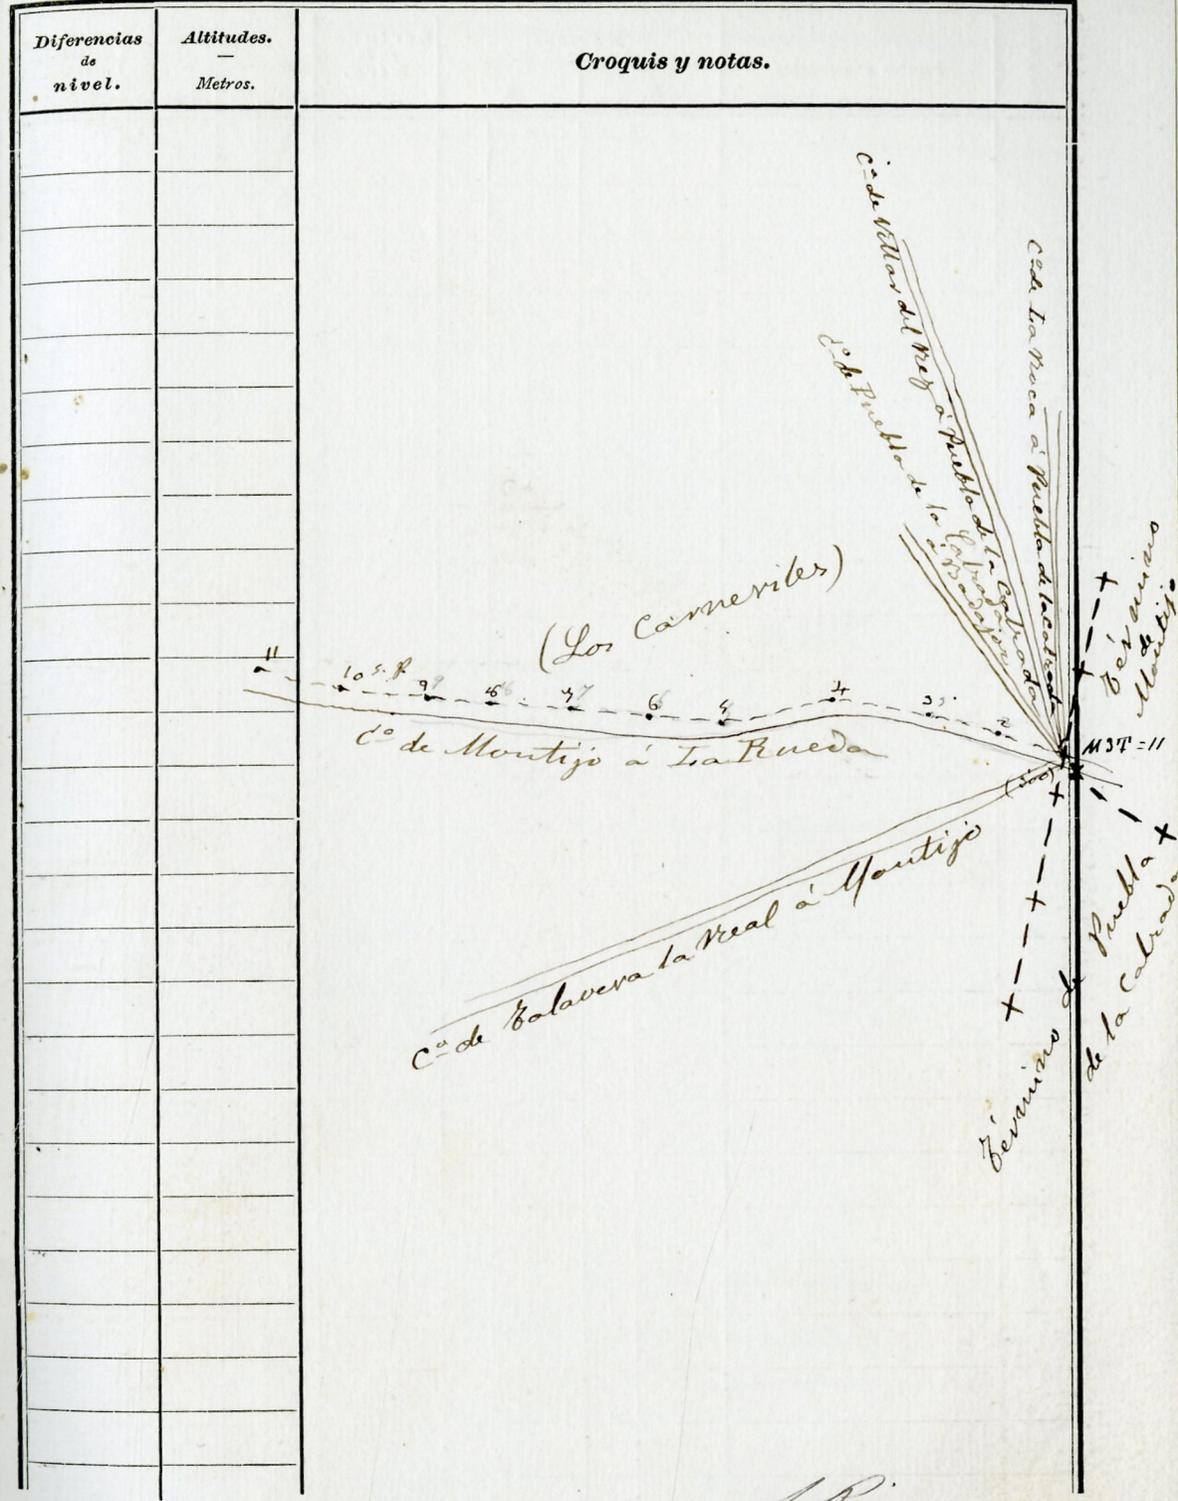 Diferencias
de
nivel.
Altitudes.
—
Metros.
Croquis y notas.
Cº de Villar del Rey á Puebla de la Calzada
Cº de La Roca á Puebla de la Calzada
Cº de Puebla de la Calzada
á Badajoz
(Los Carneriles)
11
10
9
8
7
6
5
4
3
2
Cº de Montijo á La Rueda
M3T=11
Término
de
Montijo
Cº de Talavera la Real á Montijo
Término de Puebla
de la Calzada